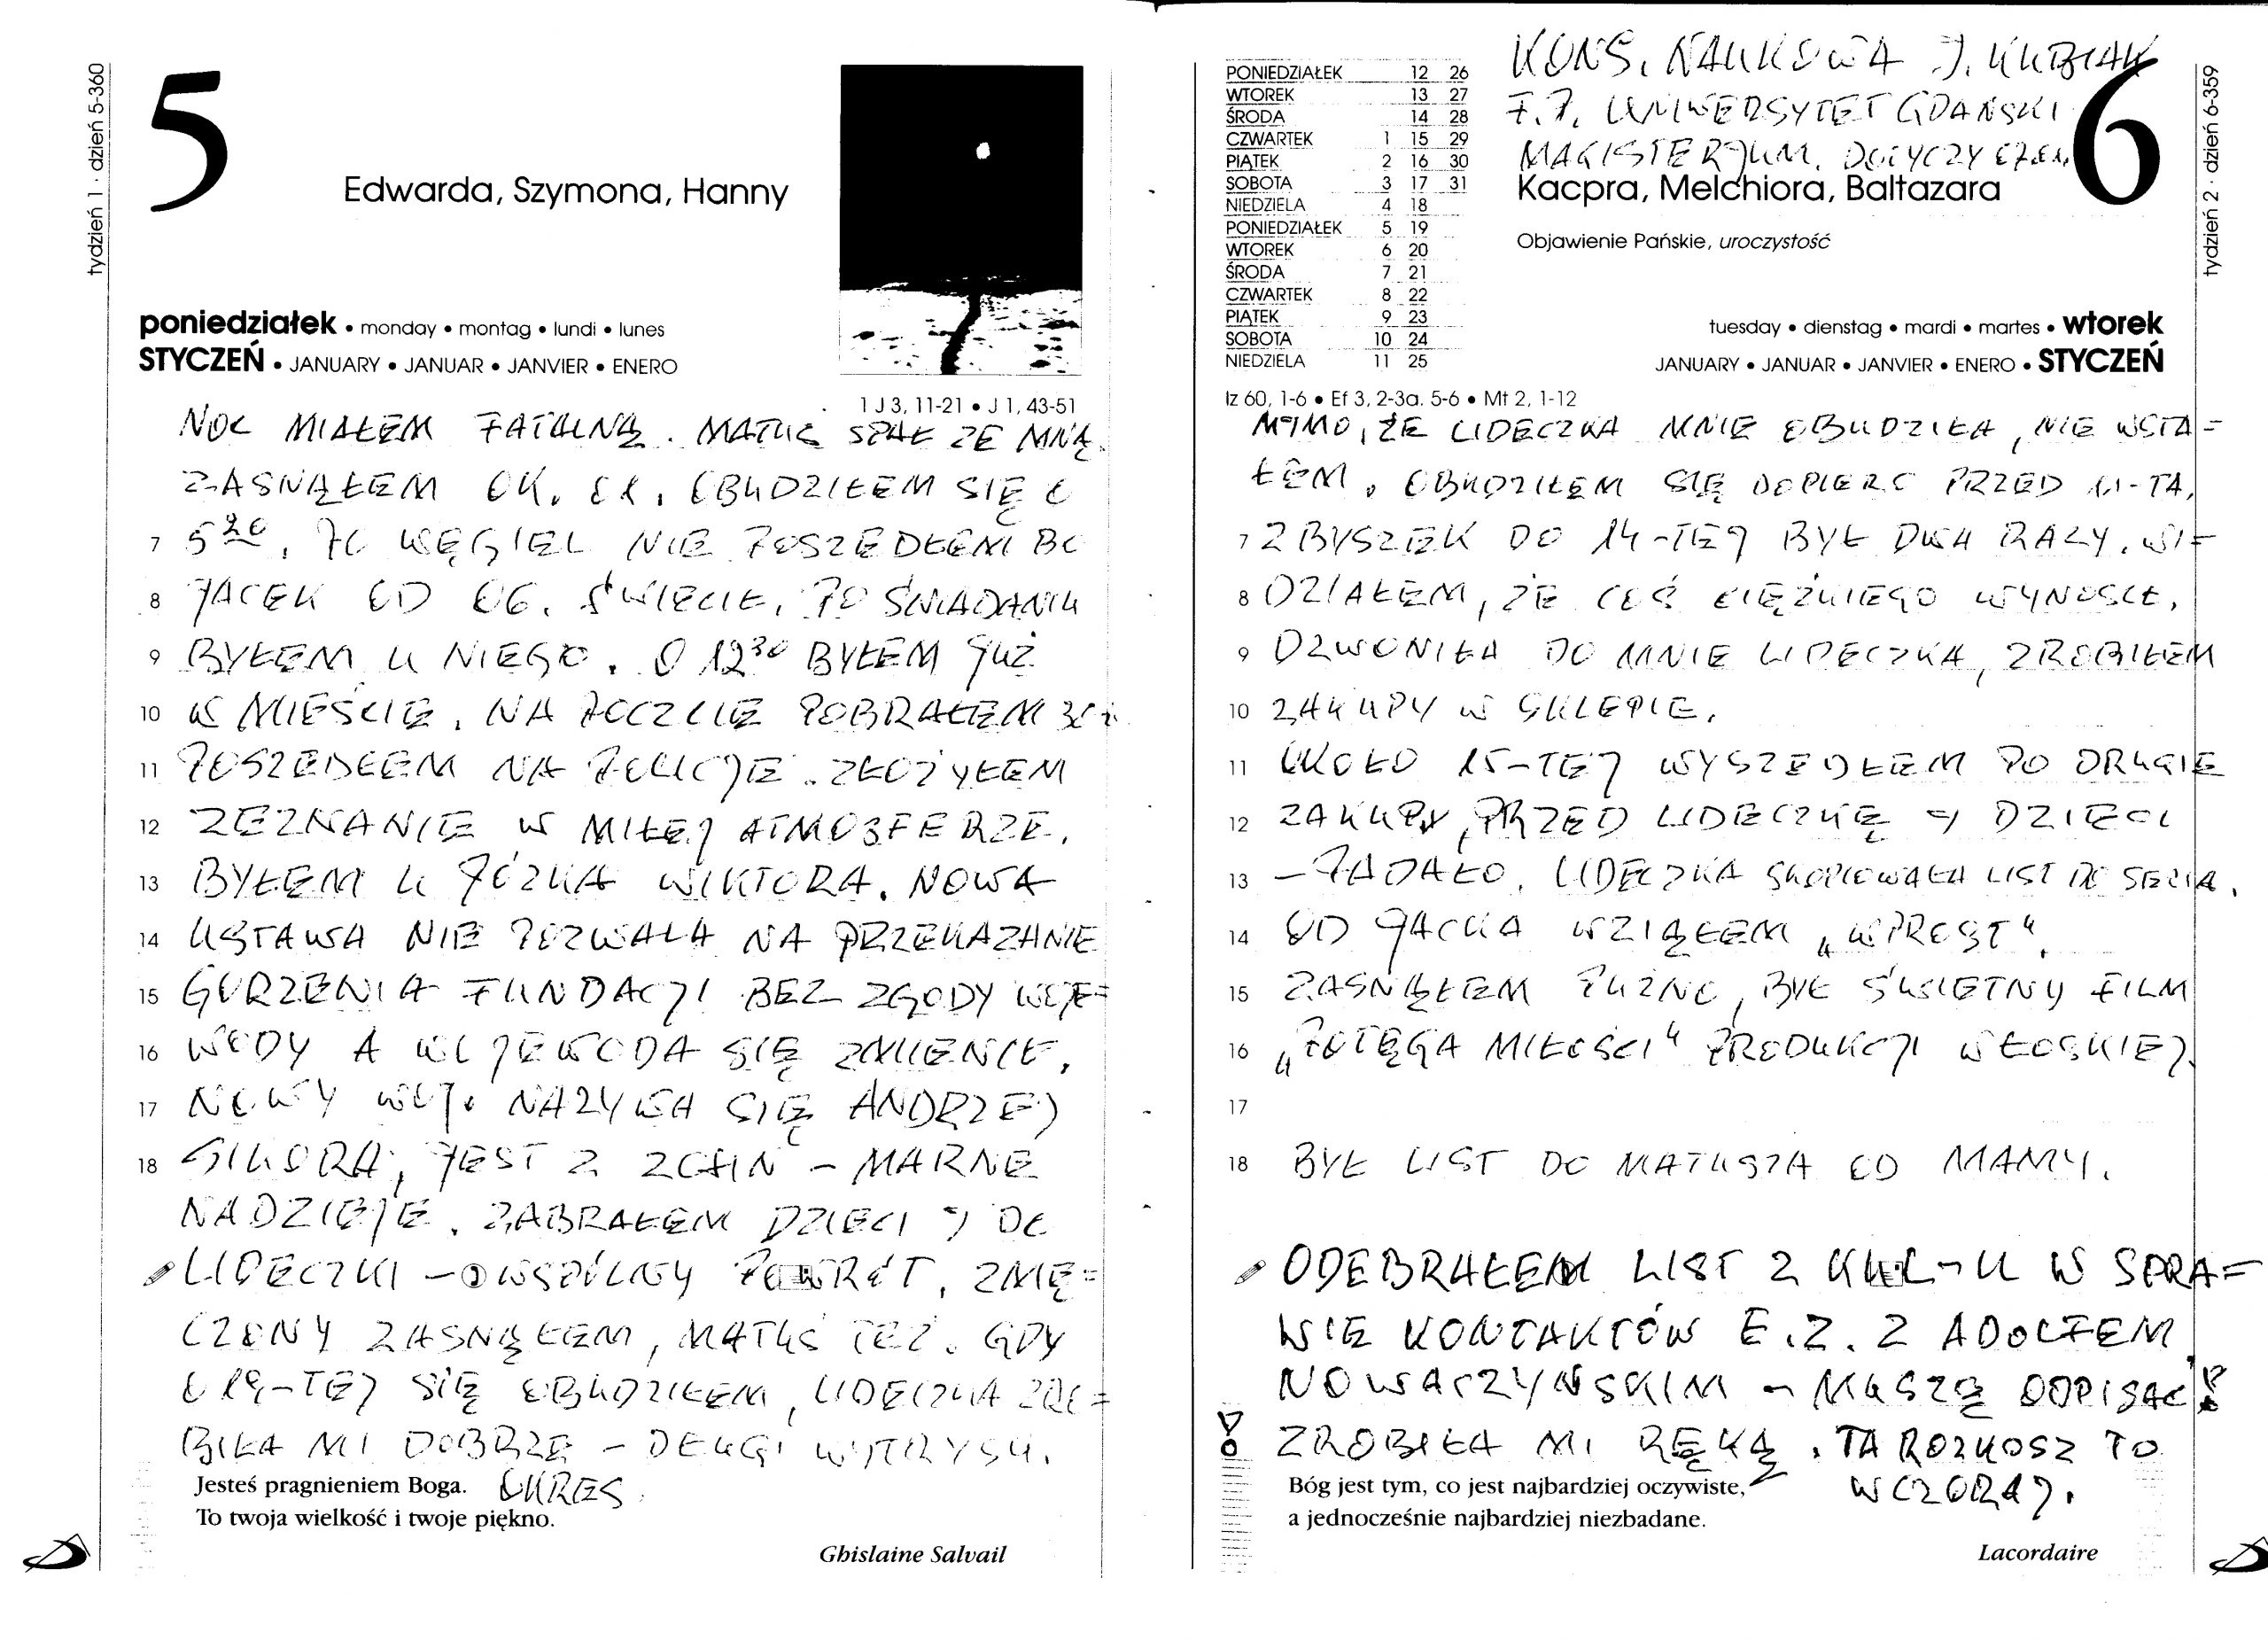 tydzień 1 · dzień 5-360
5
Edwarda, Szymona, Hanny
poniedziałek • monday • montag • lundi • lunes
STYCZEŃ • JANUARY • JANUAR • JANVIER • ENERO
1 J 3, 11-21 • J 1, 43-51
NOC MIAŁEM FATALNĄ. MATUŚ SPAŁ ZE MNĄ.
ZASNĄŁEM OK. 01. OBUDZIŁEM SIĘ O
7 5 20. PO WĘGIEL NIE POSZEDŁEM BO
8 JACEK OD 06. ŚWIĘCIE. PO ŚNIADANIU
9 BYŁEM U NIEGO. O 12 30 BYŁEM JUŻ
10 W MIEŚCIE. NA POCZCIE POBRAŁEM
11 POSZEDŁEM NA POLICJE. ZŁOŻYŁEM
12 ZEZNANIE W MIŁEJ ATMOSFERZE.
13 BYŁEM U JÓZKA WIKTORA. NOWA
14 USTAWA NIE POZWALA NA PRZEKAZANIE
15 GORZENIA FUNDACJI BEZ ZGODY WOJE=
16 WODY A WOJEWODA SIĘ ZMIENIŁ.
17 NOWY WOJ. NAZYWA SIĘ ANDRZEJ
18 SIKORA, JEST Z ZCHN – MARNE
NADZIEJE. ZABRAŁEM DZIECI → DO
LIDECZKI – WSPÓLNY POWRÓT. ZMĘ=
CZONY ZASNĄŁEM, MATUŚ TEŻ. GDY
O 19-TEJ SIĘ OBUDZIŁEM, LIDECZKA ZRO=
BIŁA MI DOBRZE – DŁUGI WYTRYSK.
OKRES.
Jesteś pragnieniem Boga.
To twoja wielkość i twoje piękno.
Ghislaine Salvail
KONS. NAUKOWA J. KUBIAK
F.P. UNIWERSYTET GDAŃSKI
MAGISTERJUM. DOTYCZY
PONIEDZIAŁEK 12 26
WTOREK 13 27
ŚRODA 14 28
CZWARTEK 1 15 29
PIĄTEK 2 16 30
SOBOTA 3 17 31
NIEDZIELA 4 18
PONIEDZIAŁEK 5 19
WTOREK 6 20
ŚRODA 7 21
CZWARTEK 8 22
PIĄTEK 9 23
SOBOTA 10 24
NIEDZIELA 11 25
6
tydzień 2 · dzień 6-359
Kacpra, Melchiora, Baltazara
Objawienie Pańskie, uroczystość
tuesday • dienstag • mardi • martes • wtorek
JANUARY • JANUAR • JANVIER • ENERO • STYCZEŃ
Iz 60, 1-6 • Ef 3, 2-3a. 5-6 • Mt 2, 1-12
MIMO, ŻE LIDECZKA MNIE OBUDZIŁA, NIE WSTA=
ŁEM. OBUDZIŁEM SIĘ DOPIERO PRZED 11-TĄ.
7 ZBYSZEK DO 14-TEJ BYŁ DWA RAZY. WI=
8 DZIAŁEM, ŻE COŚ CIĘŻKIEGO WYNOSIŁ.
9 DZWONIŁA DO MNIE LIDECZKA, ZROBIŁEM
10 ZAKUPY W SKLEPIE.
11 OKOŁO 15-TEJ WYSZEDŁEM PO DRUGIE
12 ZAKUPY, PRZED LIDECZKĘ → DZIECI
13 – PADAŁO. LIDECZKA SKOPIOWAŁA LIST DO
14 OD JACKA WZIĄŁEM „WPROST".
15 ZASNĄŁEM PÓŹNO, BYŁ ŚWIETNY FILM
16 „POTĘGA MIŁOŚCI" PRODUKCJI WŁOSKIEJ.
17
18 BYŁ LIST DO MATUSZA OD MAMY.
ODEBRAŁEM LIST Z KUL-U W SPRA=
WIE KONTAKTÓW E.Z. Z ADOLFEM
NOWACZYŃSKIM – MUSZĘ ODPISAĆ!
ZROBIŁA MI RĘKĄ. TA ROZKOSZ TO
WCZORAJ.
Bóg jest tym, co jest najbardziej oczywiste,
a jednocześnie najbardziej niezbadane.
Lacordaire